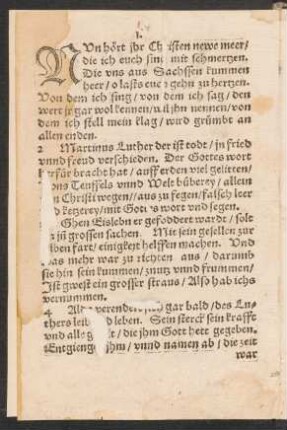 1.
NUn hört jhr Ch isten newe meer/
die ich euch sin mit schmertzen.
Die vns aus Sachssen kummen
heer/ o lasts euc gehn zu hertzen.
Von dem ich sing/ von dem ich sag/ den
wert jr gar wol kennen/ wil jhn nennen/ von
dem ich stell mein klag/ wird grümbt an
allen enden.
2 Martinus Luther der ist todt/ in frid
vnnd freud verschieden. Der Gottes wort
herfür bracht hat/ auff erden viel gelitten/
ons Teuffels vnnd Welt büberey/ allein
n Christi wegen// aus zu fegen/ falsch leer
d ketzerey/ mit Got s wort vnd segen.
Ghen Eisleben er gefoddert ward t/ solt
zu grossen sachen. Mit sein gesellen zur
ben fart/ einigkeyt helffen machen. Vnd
as mehr war zu richten aus/ darumb
sie hin sein kummen/ znutz vnnd frummen/
Ist gwest ein grosser straus/ Also hab ichs
vernummen.
4 Al verendert sich gar bald/ des Lu-
thers leib d leben. Sein sterck sein krafft
vnd alle t/ die jhm Gott hett gegeben.
Entgieng jhm/ vnnd namen ab/ die zeit
war